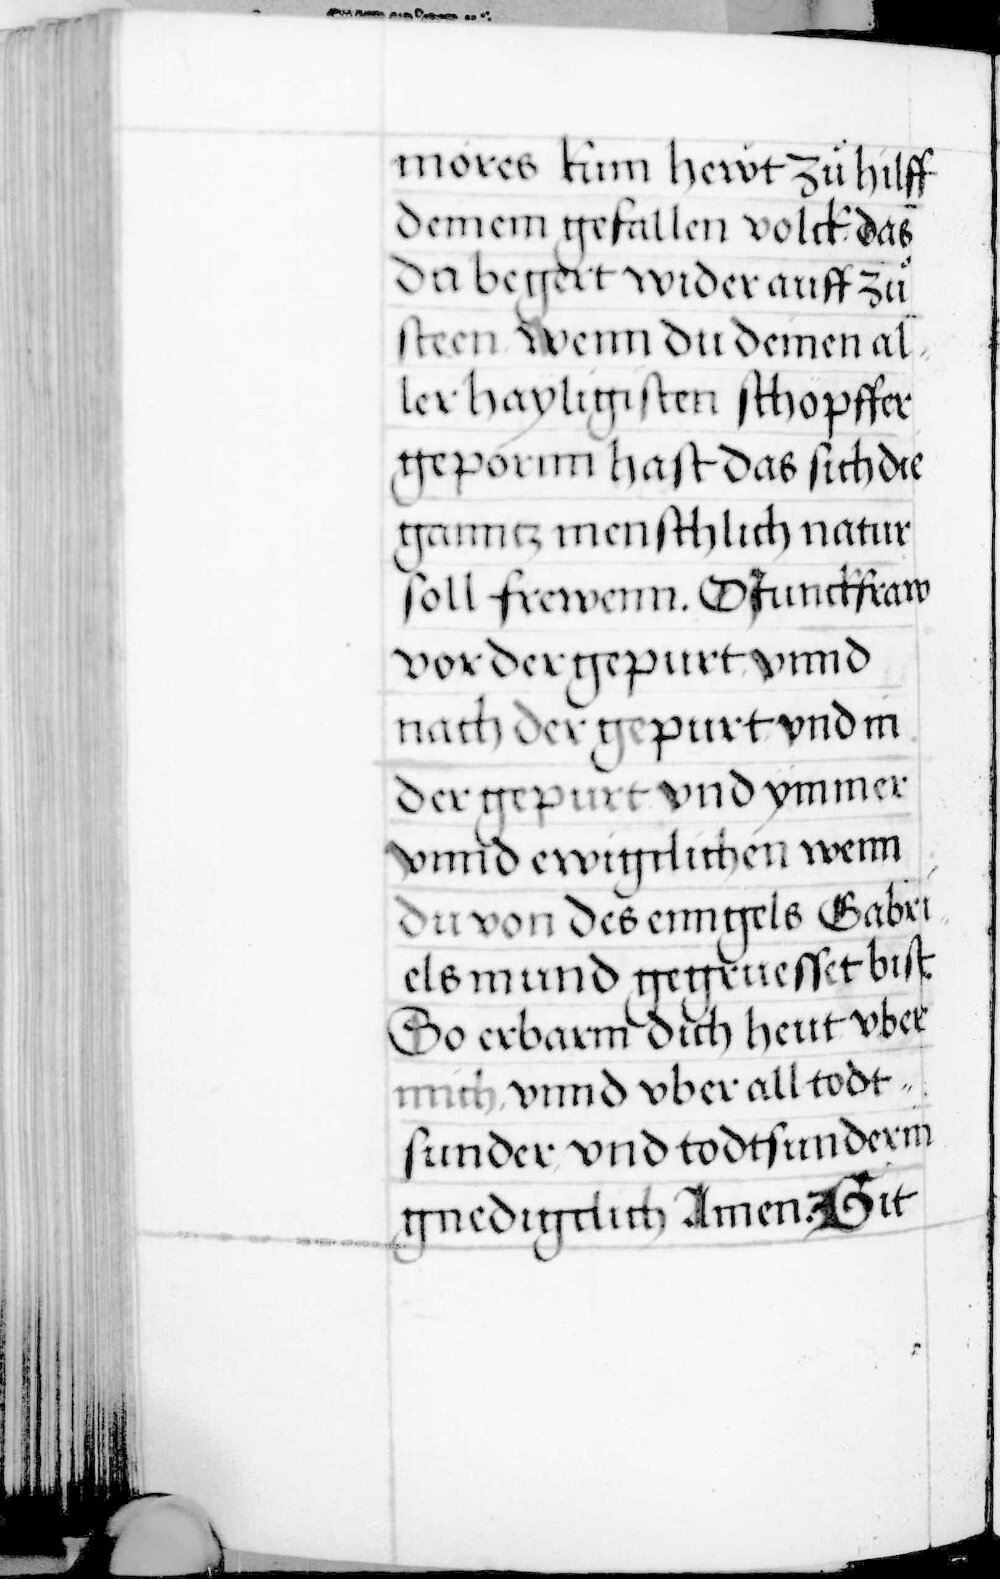 mores kum hewt zů hilff
deinem gefallen volck das
da begert wider auff zů
steen wenn du deinen al
ler hayligisten schöpffer
gepornn hast das sich die
ganntz menschlich natur
soll frewenn. O Junckfraw
vor der gepurt vnnd
nach der gepurt vnd in
der gepurt vnd ymmer
vnnd ewigclichen wenn
du von des enngels Gabri
els mund gegruesset bist
So erbarm dich heut vber
mich, vnnd vber all todt
sunder vnd todtsunderin
gnedigclich Amen.